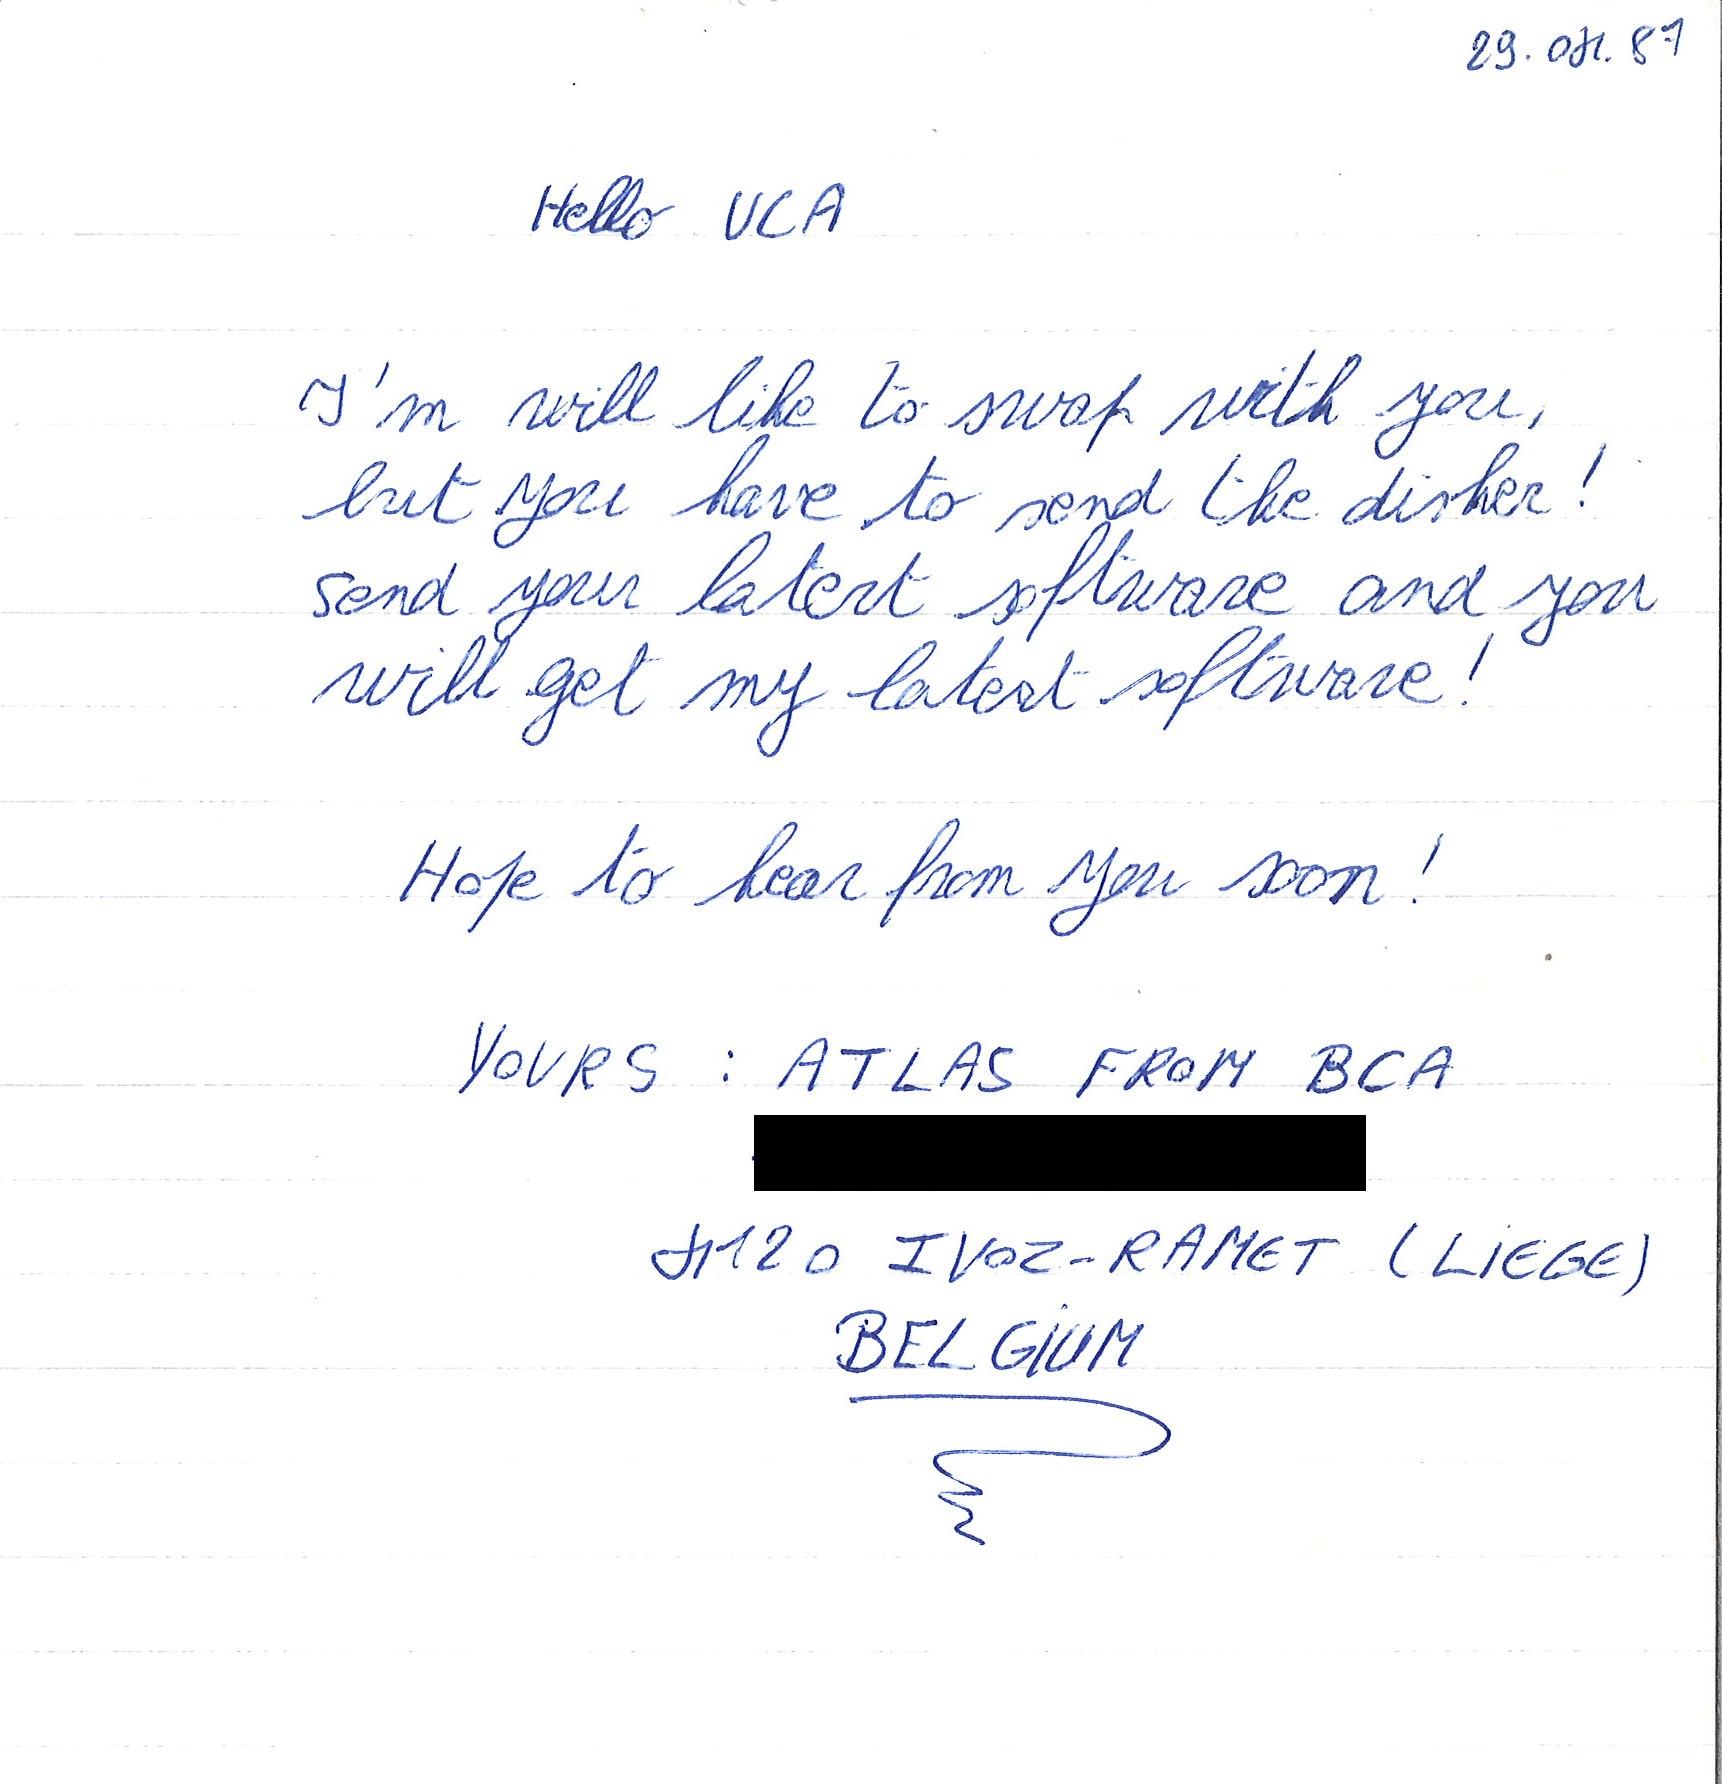 29.04.87
Hello UCA
I'm will like to swap with you,
but you have to send the diskes!
send your latest software and you
will get my latest software!
Hope to hear from you soon!
YOURS : ATLAS FROM BCA
4120 IVOZ-RAMET (LIEGE)
BELGIUM